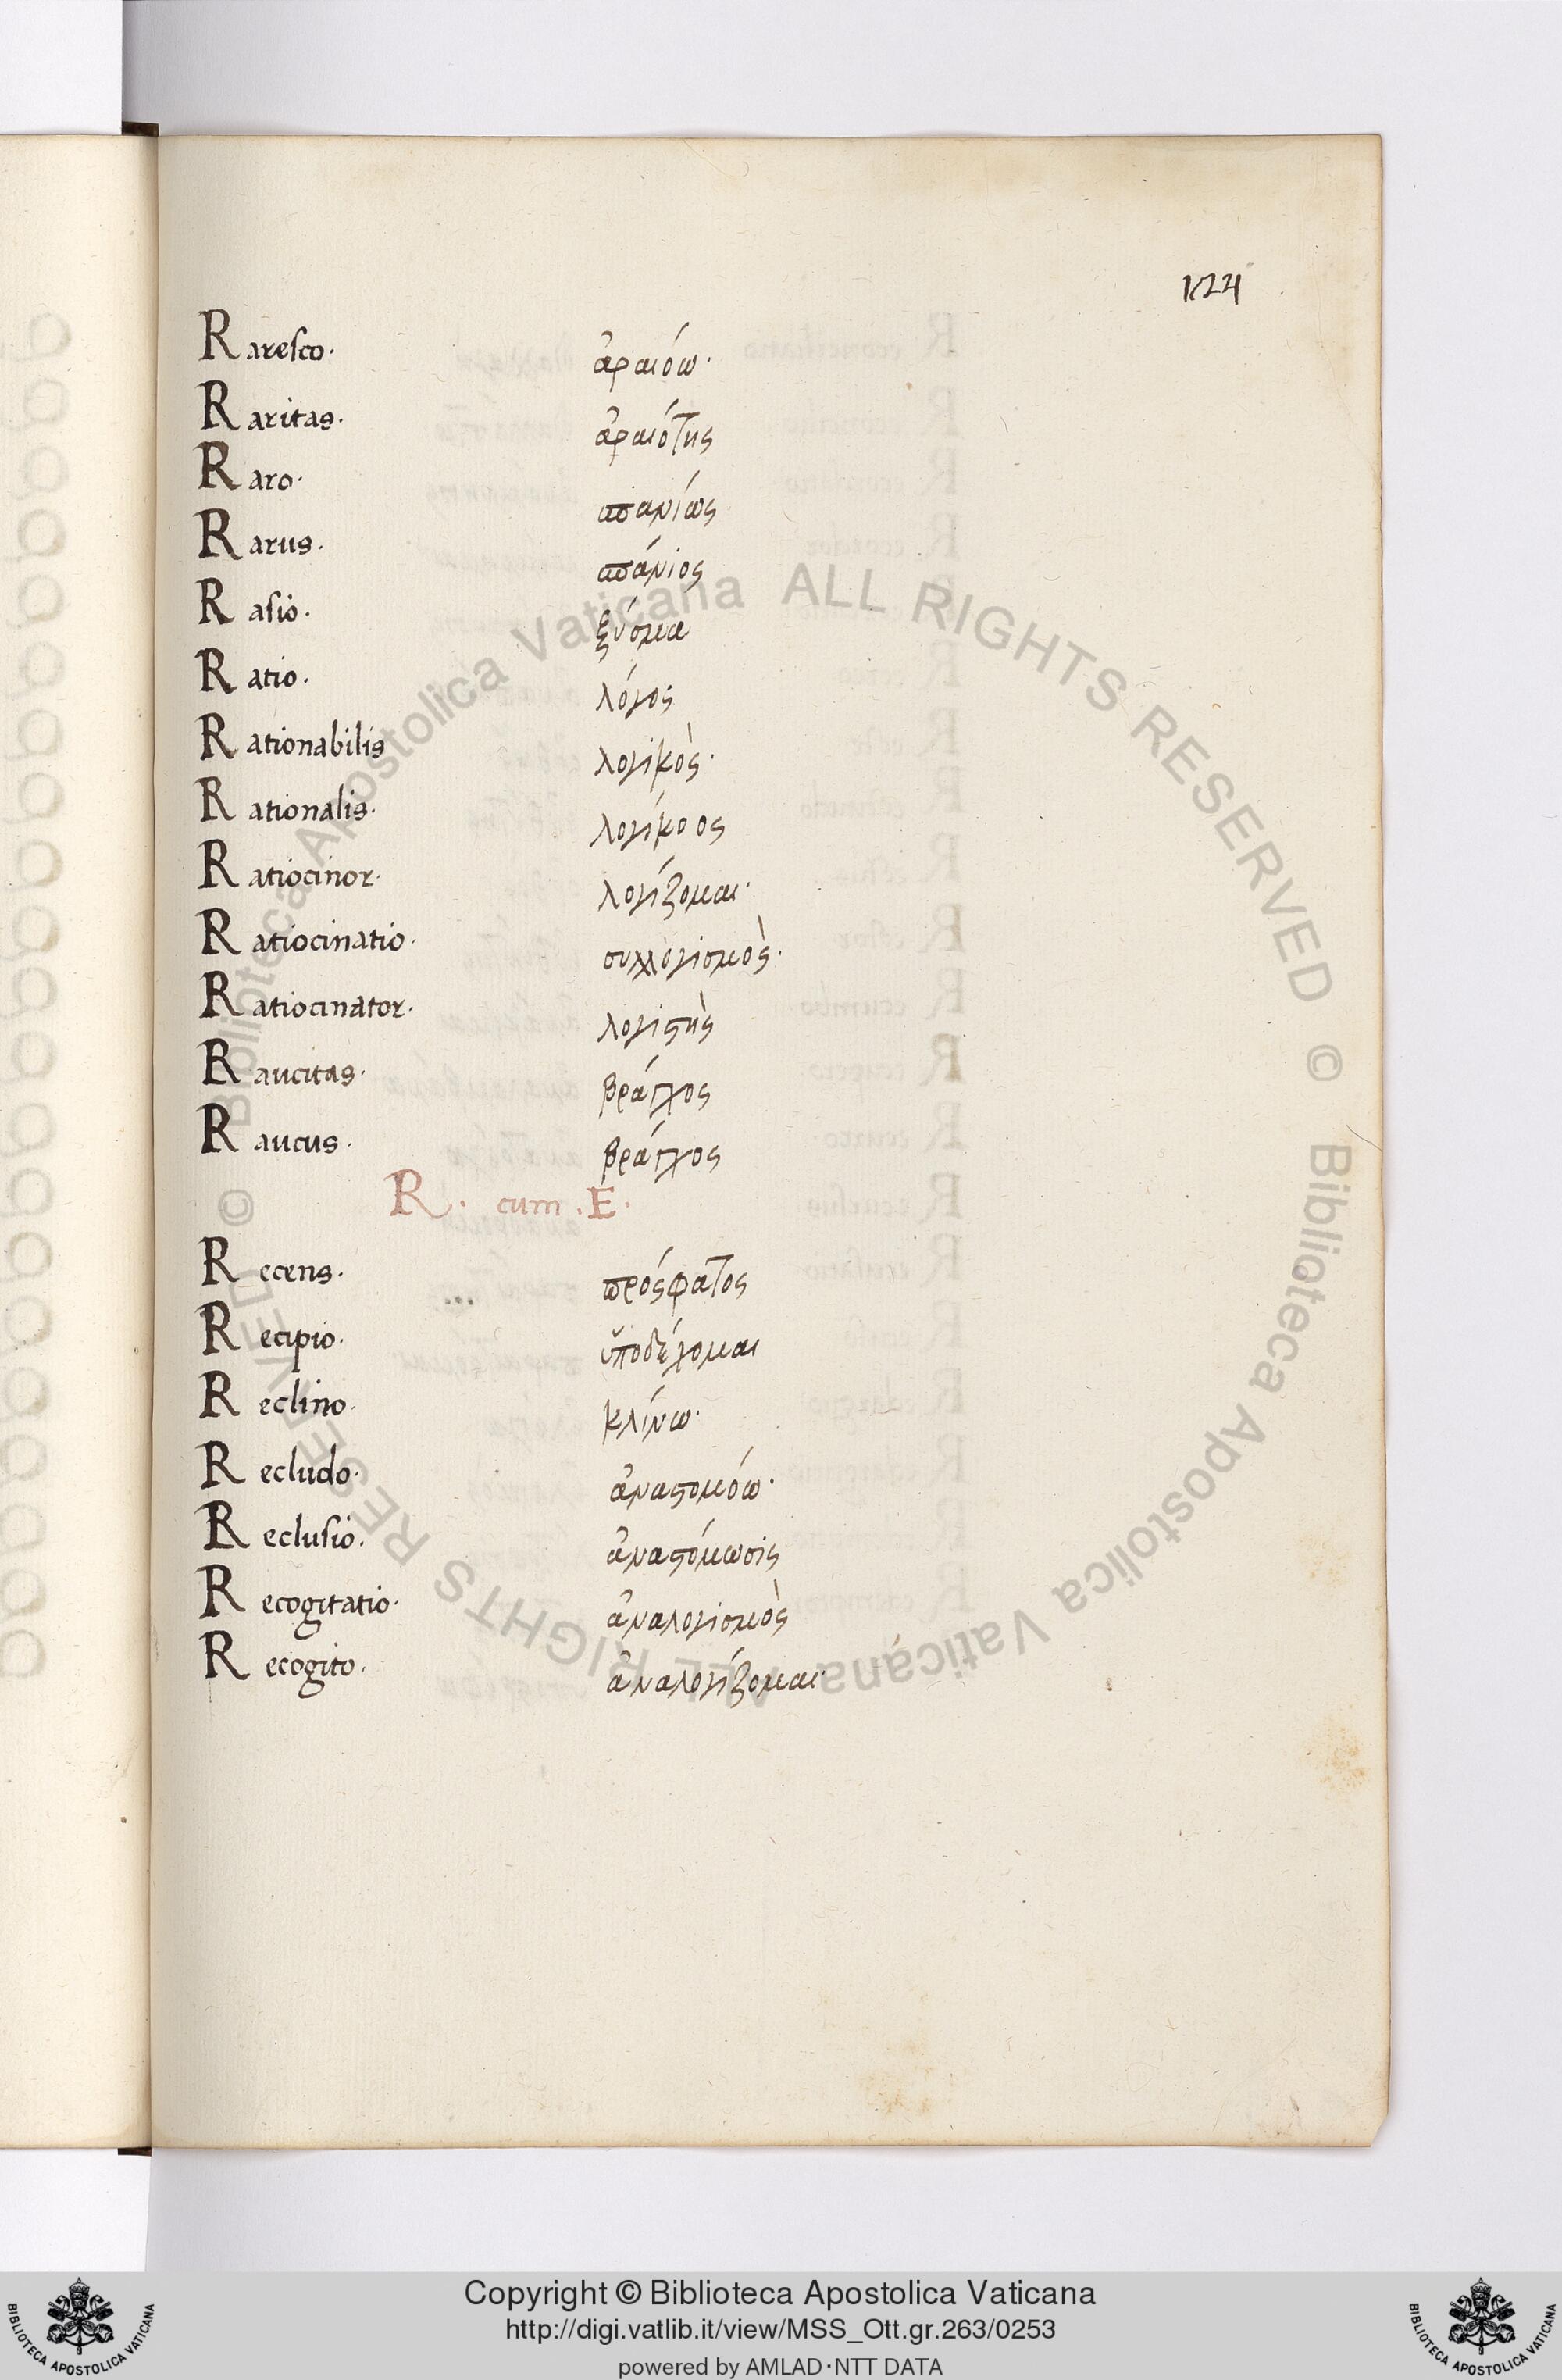 124
Raresco. ἀραιόω.
Raritas. ἀραιότης
Raro. σπανίως
Rarus. σπάνιος
Rasio. ξύσμα
Ratio. λόγος
Rationabilis λογικὸς.
Rationalis. λογίκοος
Ratiocinor. λογίζομαι.
Ratiocinatio. συλλογισμὸς.
Ratiocinator. λογιστὴς
Raucitas. βράγχος
Raucus. βράγχος
R. cum .E.
Recens. πρόσφατος
Recipio. ὑποδέχομαι
Reclino. κλίνω.
Recludo. ἀναστομόω.
Reclusio. ἀναστόμωσις
Recogitatio. ἀναλογισμὸς
Recogito. ἀναλογίζομαι.
© Biblioteca Apostolica Vaticana ALL RIGHTS RESERVED © Biblioteca Apostolica Vaticana ALL RIGHTS RESERVED
Copyright © Biblioteca Apostolica Vaticana
http://digi.vatlib.it/view/MSS_Ott.gr.263/0253
powered by AMLAD·NTT DATA
BIBLIOTECA APOSTOLICA VATICANA
BIBLIOTECA APOSTOLICA VATICANA